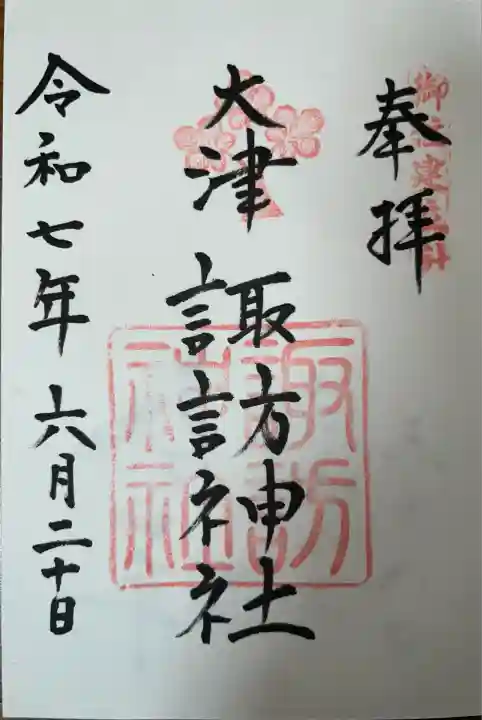 奉拝
大津諏訪神社
諏訪神社
令和七年六月二十日